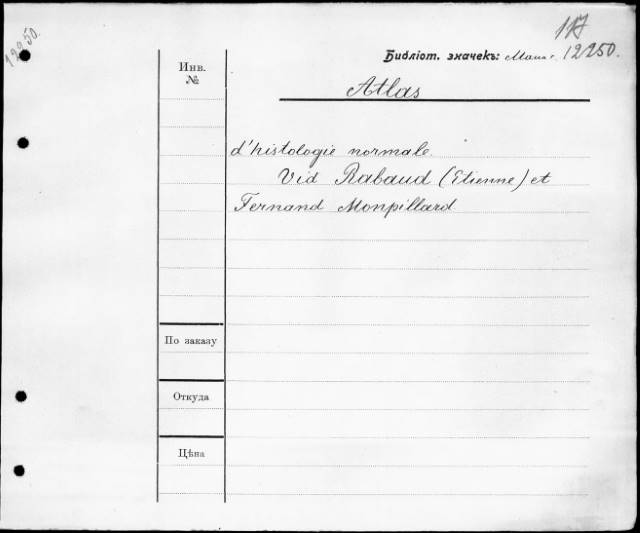 12250.
117
Инв.
№
Библіот. значекъ: 12250.
Atlas
d'histologie normale.
Vid Rabaud (Etienne) et
Fernand Monpillard
По заказу
Откуда
Цѣна